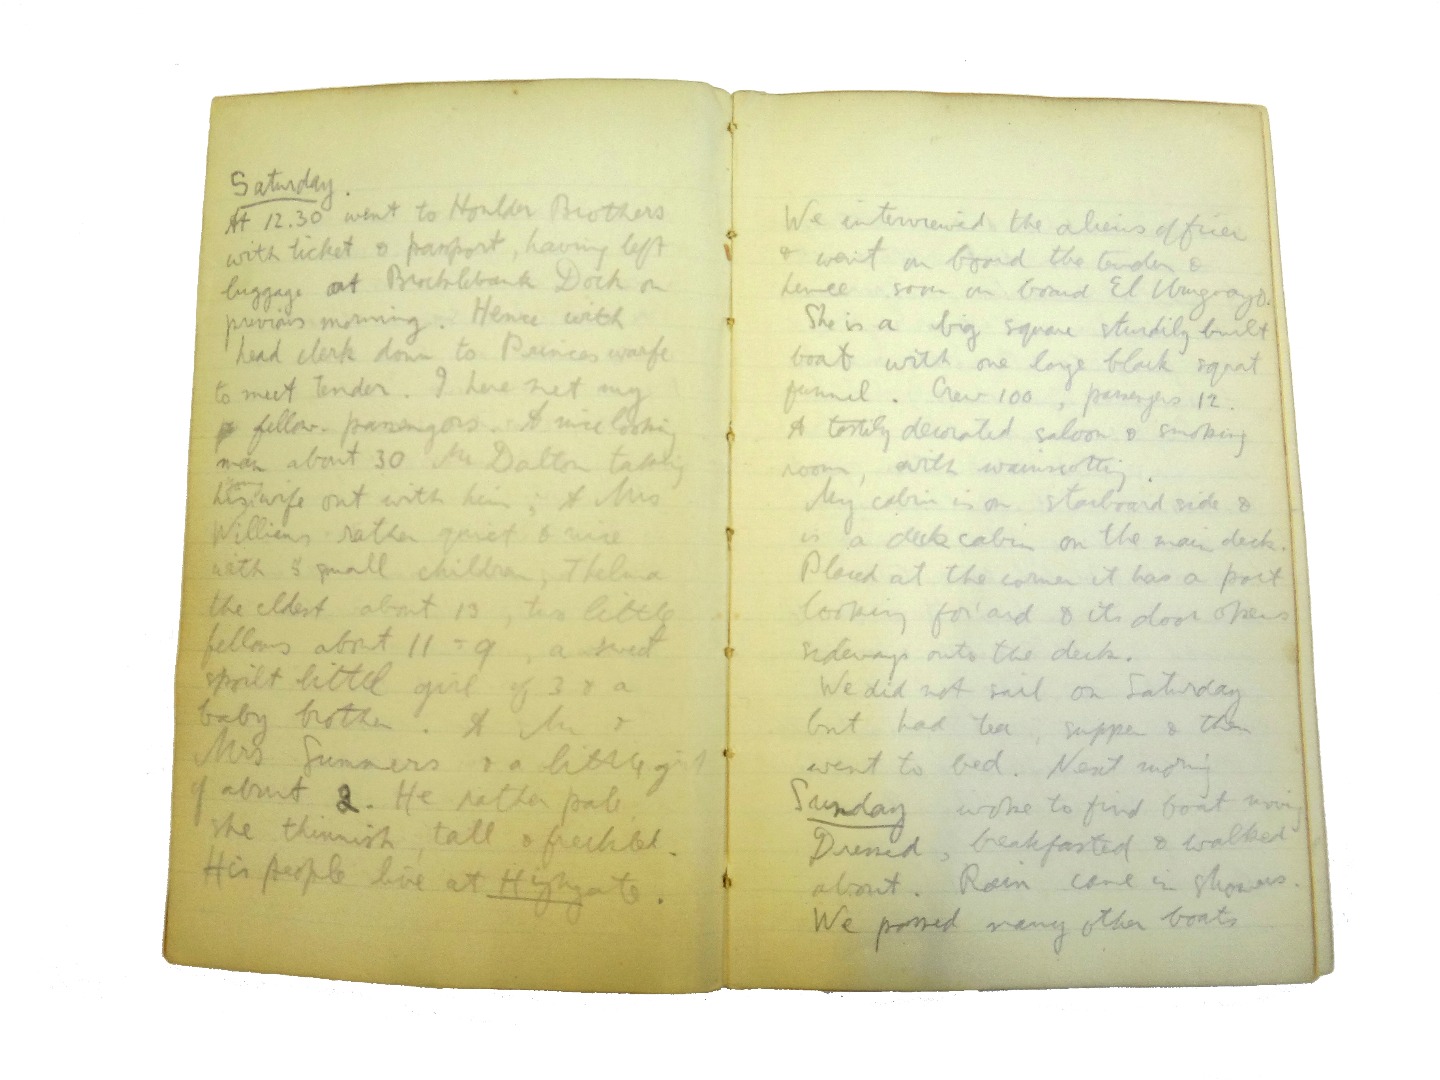 Saturday.
At 12.30 went to Houlder Brothers
with ticket & passport, having left
luggage at Brocklebank Dock on
previous morning. Hence with
head clerk down to Princes warfe
to meet tender. I here met my
fellow-passengers. A nice looking
man about 30 Mr Dalton taking
his wife out with him; A Mrs
Williams rather quiet & nice
with 5 small children, Thelma
the eldest about 13, two little
fellows about 11 - 9, a sweet
spoilt little girl of 3 & a
baby brother. A Mr &
Mrs Summers & a little girl
of about 2. He rather pale,
she thinnish, tall & freckled.
His people live at Highgate.
We interviewed the aliens officer
& went on board the tender &
hence soon on board El Uruguayo.
She is a big square sturdily built
boat with one large black squat
funnel. Crew 100, passengers 12.
A tastily decorated saloon & smoking
room, with wainscotting.
My cabin is on starboard side &
is a deck cabin on the main deck.
Placed at the corner it has a port
looking for'ard & its door opens
sideways onto the deck.
We did not sail on Saturday
but had tea, supper & then
went to bed. Next morning
Sunday woke to find boat moving
Dressed, breakfasted & walked
about. Rain came in showers.
We passed many other boats